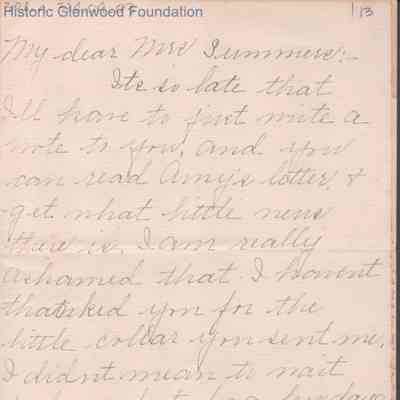 Historic Glenwood Foundation
1/13
My dear Mrs Summers:-
Its so late that
I'll have to just write a
note to you, and you
can read Amy's letter, &
get what little news
there is. I am really
ashamed that I havent
thanked you for the
little collar you sent me.
I didnt mean to wait